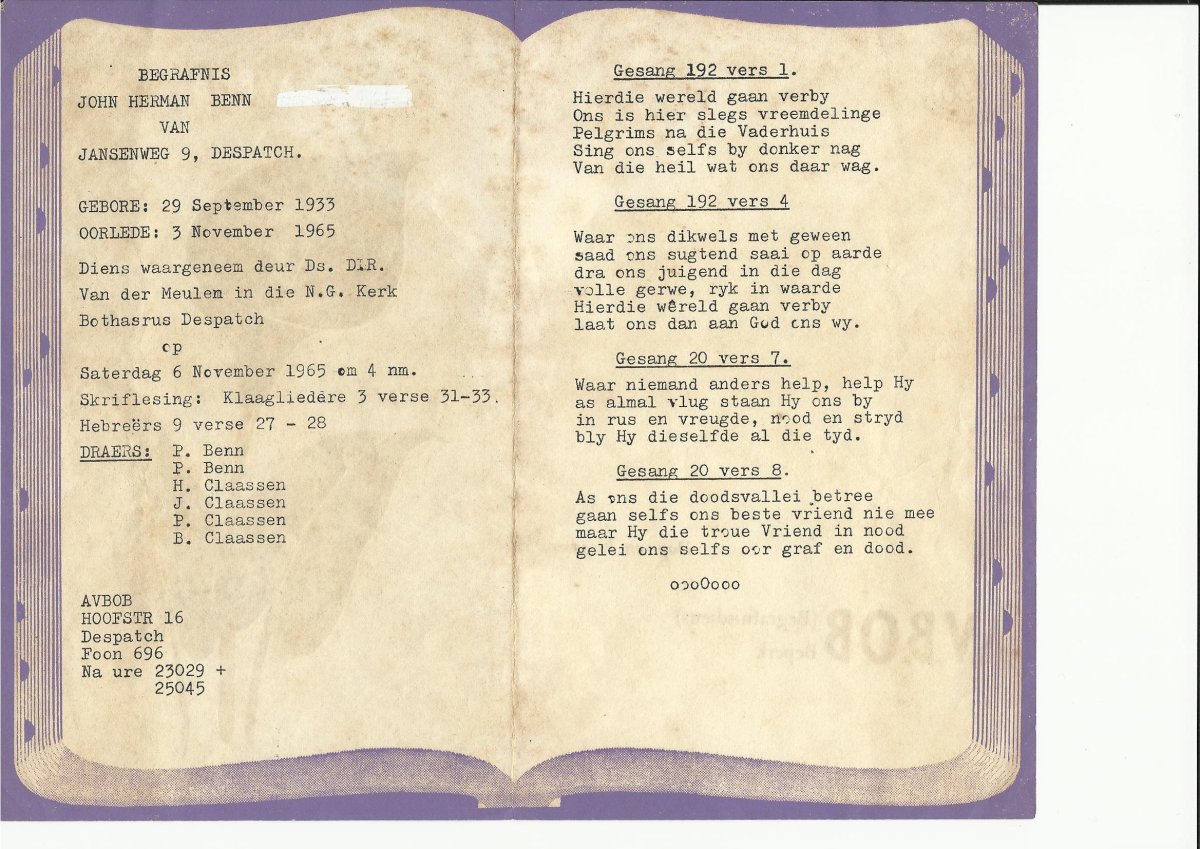 BEGRAFNIS
JOHN HERMAN BENN
VAN
JANSENWEG 9, DESPATCH.
GEBORE: 29 September 1933
OORLEDE: 3 November 1965
Diens waargeneem deur Ds. DIR.
Van der Meulem in die N.G. Kerk
Bothasrus Despatch
op
Saterdag 6 November 1965 om 4 nm.
Skriflesing: Klaagliedere 3 verse 31-33.
Hebreërs 9 verse 27 - 28
DRAERS: P. Benn
P. Benn
H. Claassen
J. Claassen
P. Claassen
B. Claassen
AVBOB
HOOFSTR 16
Despatch
Foon 696
Na ure 23029 +
25045
Gesang 192 vers 1.
Hierdie wereld gaan verby
Ons is hier slegs vreemdelinge
Pelgrims na die Vaderhuis
Sing ons selfs by donker nag
Van die heil wat ons daar wag.
Gesang 192 vers 4
Waar ons dikwels met geween
saad ons sugtend saai op aarde
dra ons juigend in die dag
volle gerwe, ryk in waarde
Hierdie wêreld gaan verby
laat ons dan aan God ons wy.
Gesang 20 vers 7.
Waar niemand anders help, help Hy
as almal vlug staan Hy ons by
in rus en vreugde, nood en stryd
bly Hy dieselfde al die tyd.
Gesang 20 vers 8.
As ons die doodsvallei betree
gaan selfs ons beste vriend nie mee
maar Hy die troue Vriend in nood
gelei ons selfs oor graf en dood.
oooOooo